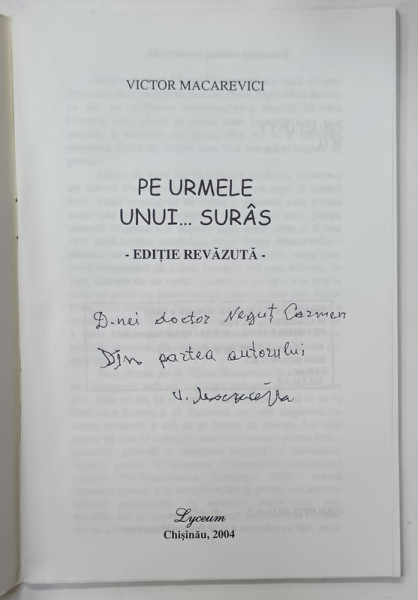 VICTOR MACAREVICI
PE URMELE
UNUI... SURÂS
- EDIȚIE REVĂZUTĂ -
D-nei doctor Neguț Carmen
Din partea autorului
V.
Lyceum
Chișinău, 2004